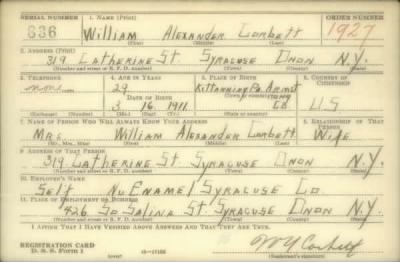 SERIAL NUMBER 1. NAME (Print) ORDER NUMBER
636 William Alexander Corbett 1927
(First) (Middle) (Last)
2. ADDRESS (Print)
319 Catherine St. Syracuse Onon N.Y.
(Number and street or R. F. D. number) (Town) (County) (State)
3. TELEPHONE 4. AGE IN YEARS 5. PLACE OF BIRTH 6. COUNTRY OF CITIZENSHIP
none 29 Kittanning Pa. Armst
DATE OF BIRTH (Town or county)
3 16 1911 Co U S
(Exchange) (Number) (Mo.) (Day) (Yr.) (State or country)
7. NAME OF PERSON WHO WILL ALWAYS KNOW YOUR ADDRESS 8. RELATIONSHIP OF THAT PERSON
Mrs William Alexander Corbett Wife
(Mr., Mrs., Miss) (First) (Middle) (Last)
9. ADDRESS OF THAT PERSON
319 Catherine St Syracuse Onon N.Y.
(Number and street or R. F. D. number) (Town) (County) (State)
10. EMPLOYER'S NAME
Self NuEnamel Syracuse Co
11. PLACE OF EMPLOYMENT OR BUSINESS
426 So Salina St. Syracuse Onon N.Y.
(Number and street or R. F. D. number) (Town) (County) (State)
I AFFIRM THAT I HAVE VERIFIED ABOVE ANSWERS AND THAT THEY ARE TRUE.
REGISTRATION CARD
D. S. S. Form 1 (over) (Registrant's signature)